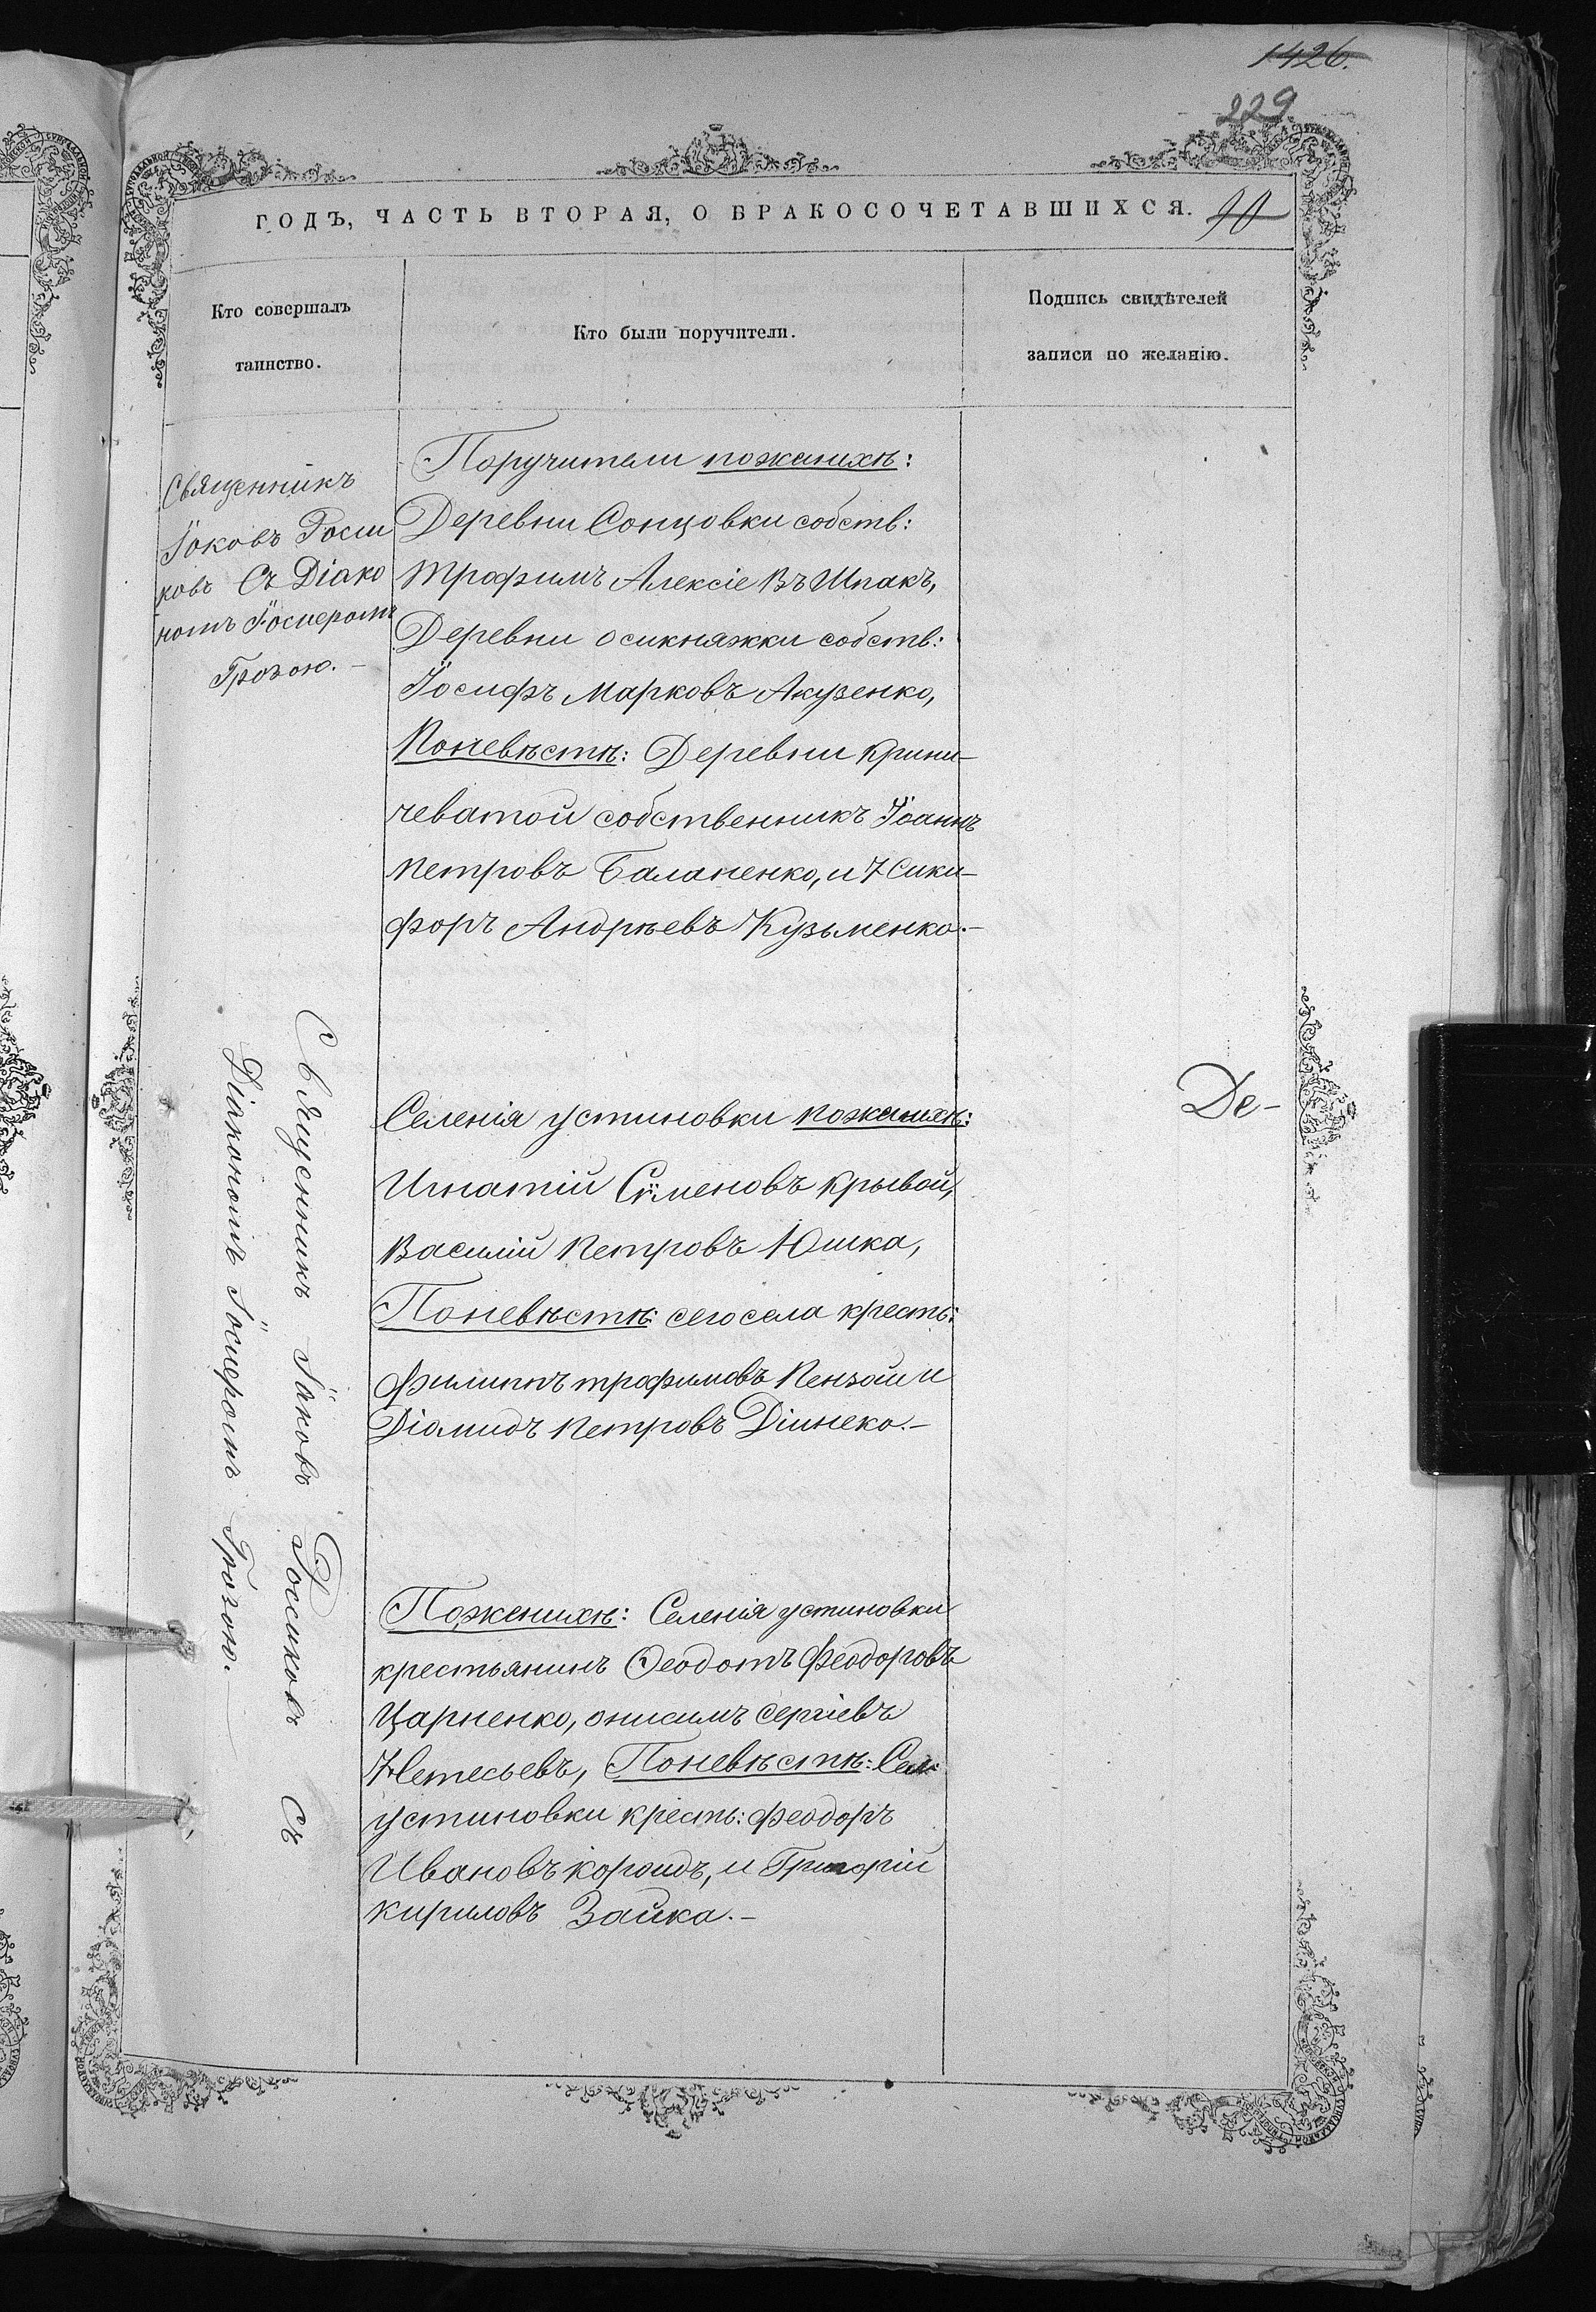 1426.
229
ГОДЪ, ЧАСТЬ ВТОРАЯ, О БРАКОСОЧЕТАВШИХСЯ.
Кто совершалъ
таинство.
Кто были поручители.
Подпись свидѣтелей
записи по желанію.
Священникъ
Іоковъ Роси
ковъ Съ Діако
номъ
Грозою.-
Поручители пожених​ѣ:
Деревни Сонцовки собств:
Трофимъ Алексіевъ Шпакъ,
Деревни осикняжки собств:
Іосифъ Марковъ Якузенко,
Поневѣстѣ: Деревни Крини-
чеватой собственникъ Іоаннъ
Петровъ Баланенко, и Ники-
форъ Андрѣевъ Кузьменко.-
Священникъ Іаковъ Россиковъ Съ
Діакономъ Грозою.
Селенія устиновки поженихѣ:
Игнатій Сѵменовъ Крывой,
Василій Петровъ Юшка,
Поневѣстѣ: сего села кресть:
Филиппъ трофимовъ Пензой и
Діомидъ Петровъ
De-
Поженихѣ: Селенія устиновки
крестьянинъ Ѳеодотъ Феодоровъ
Царненко, онисимъ Сергіевъ
Нетесьевъ, Поневѣстѣ: Сел:
устиновки кресть: Феодоръ
Ивановъ короидъ, и Григорій
Кириловъ Зайка.-